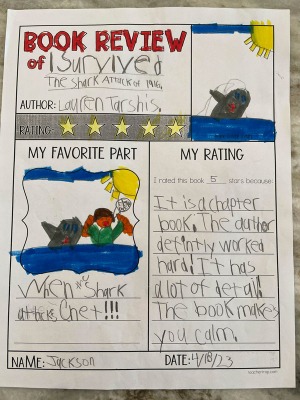 BOOK REVIEW
of I Survived
The Shark Attack of 1916,
AUTHOR: Lauren Tarshis.
RATING:
MY FAVORITE PART
When the Shark
attacks Chet!!!
MY RATING
I rated this book 5 stars because:
It is a chapter
book. The author
defintly worked
hard! It has
a lot of detail!
The book makes
you calm.
NAME: Jackson
DATE: 4/18/23